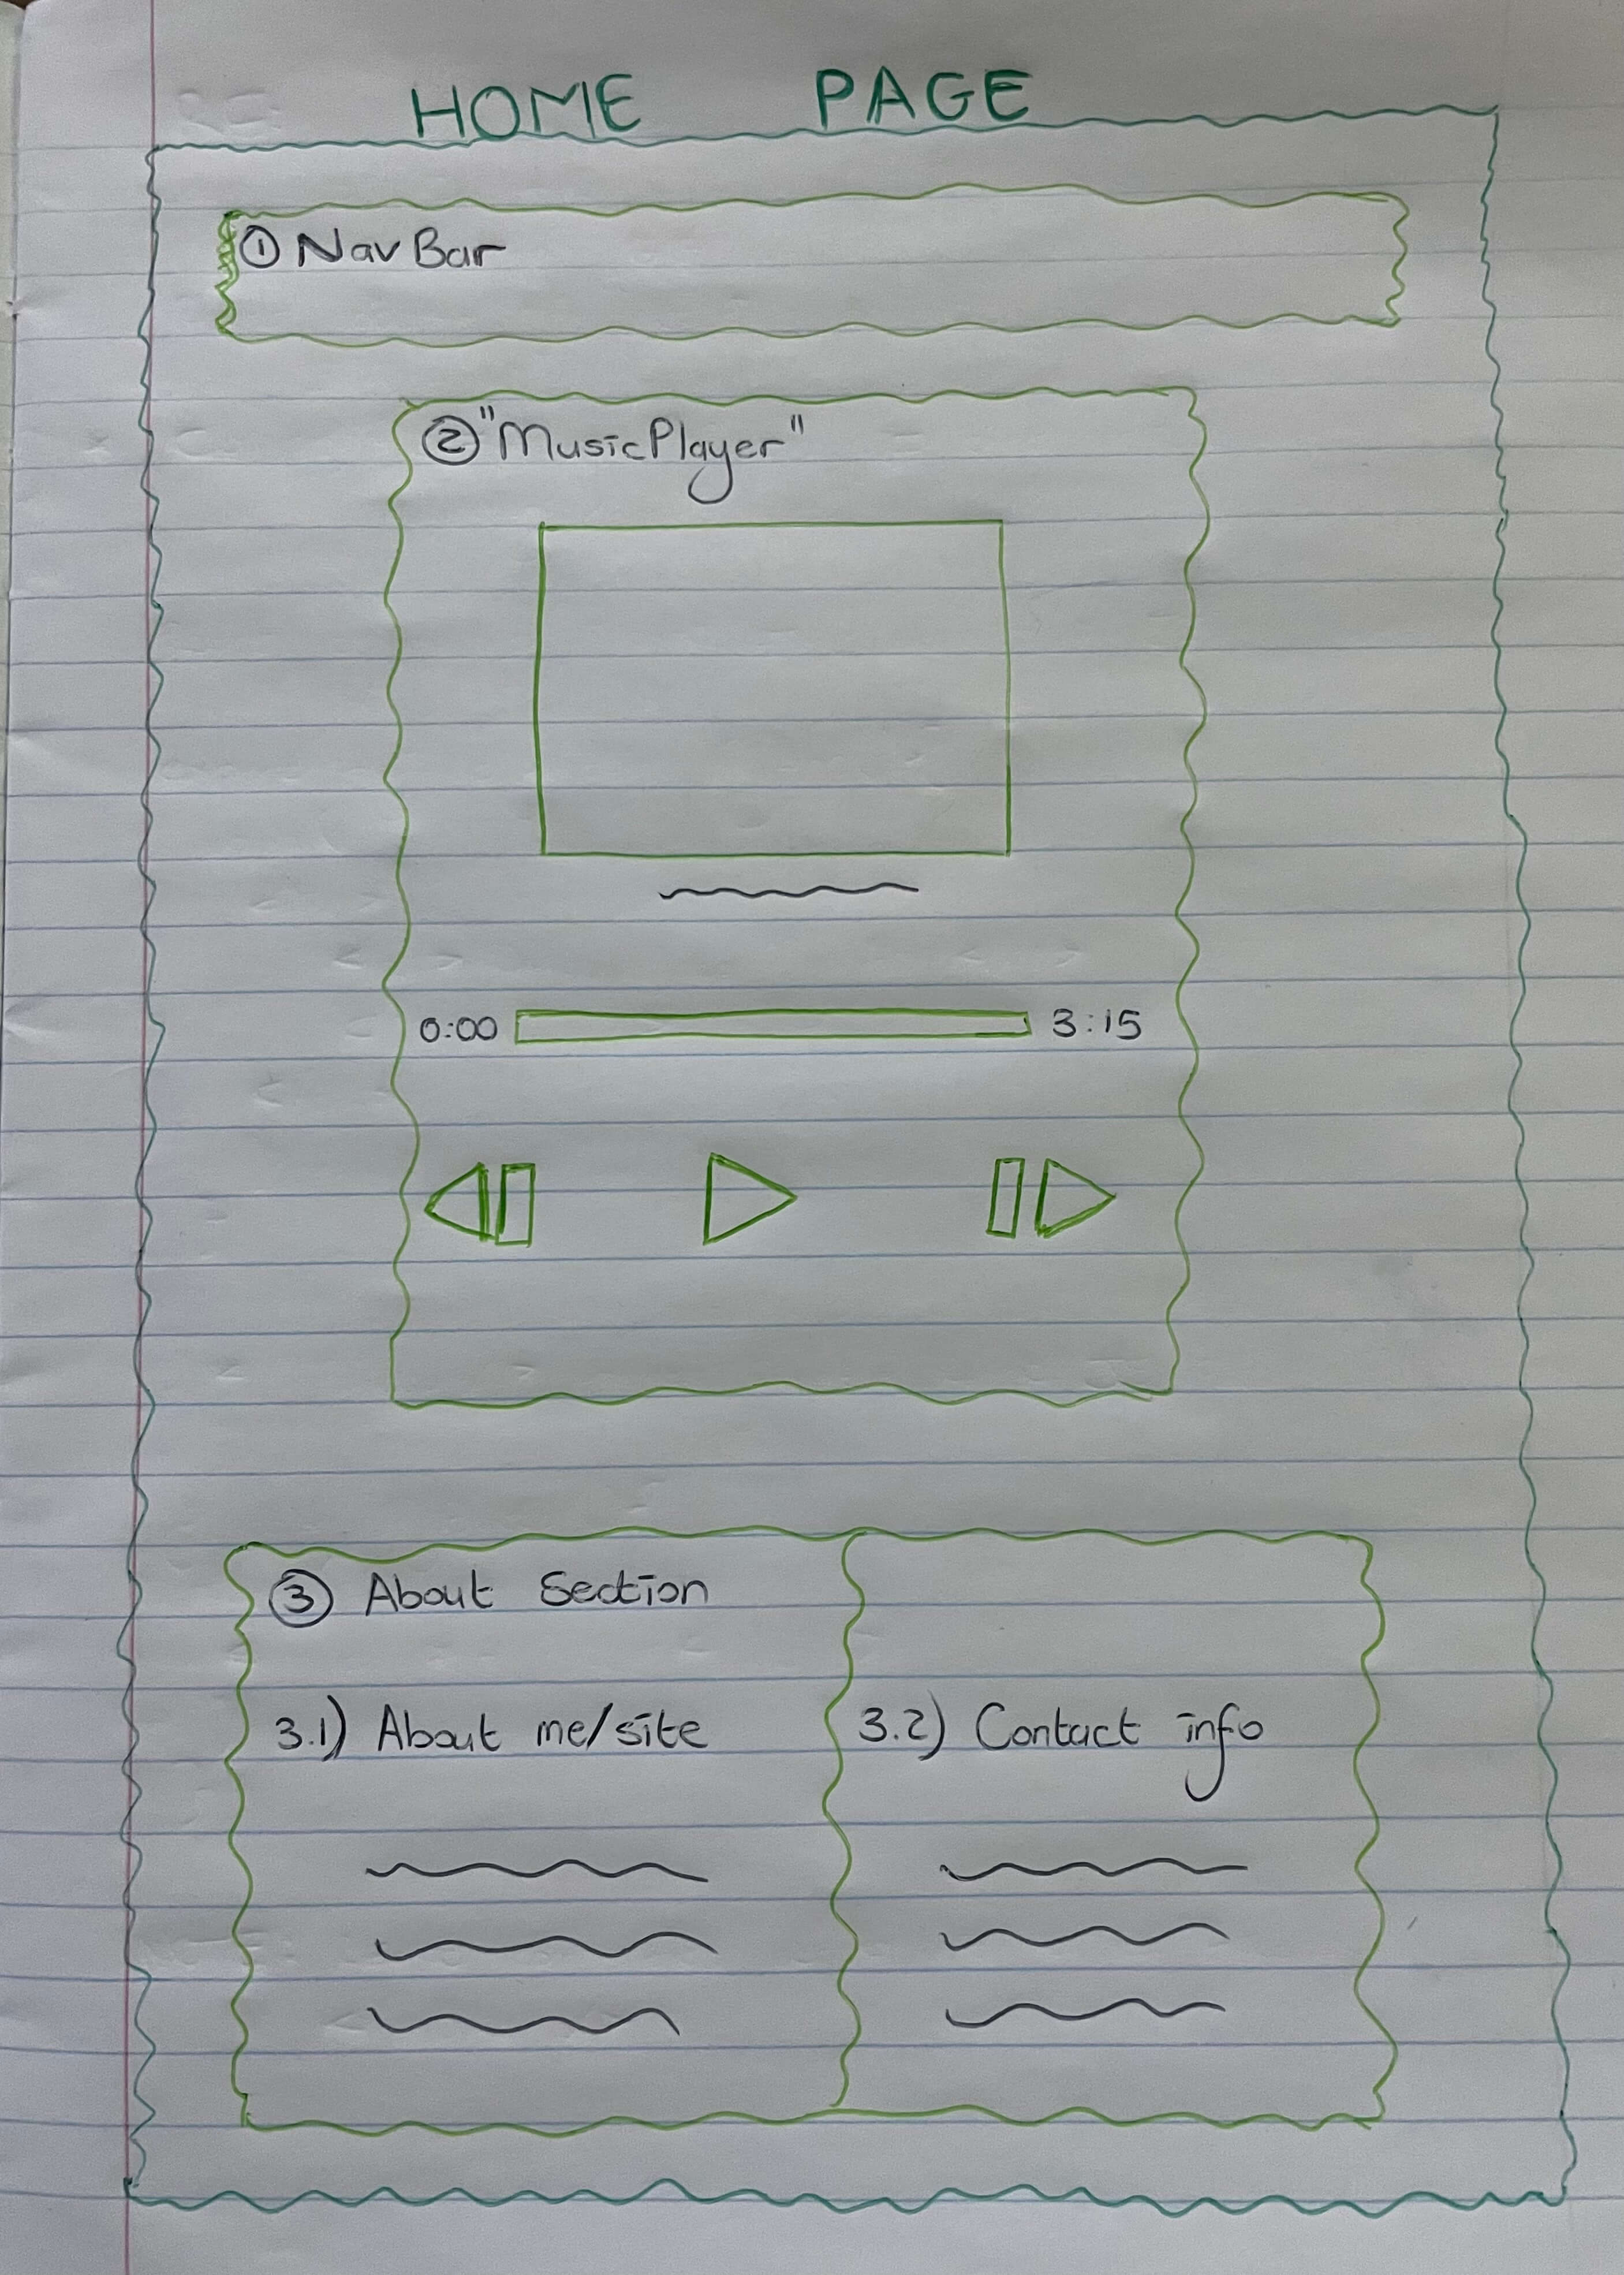 HOME PAGE
① Nav Bar
② "Music Player"
0:00 3:15
③ About Section
3.1) About me/site
3.2) Contact info